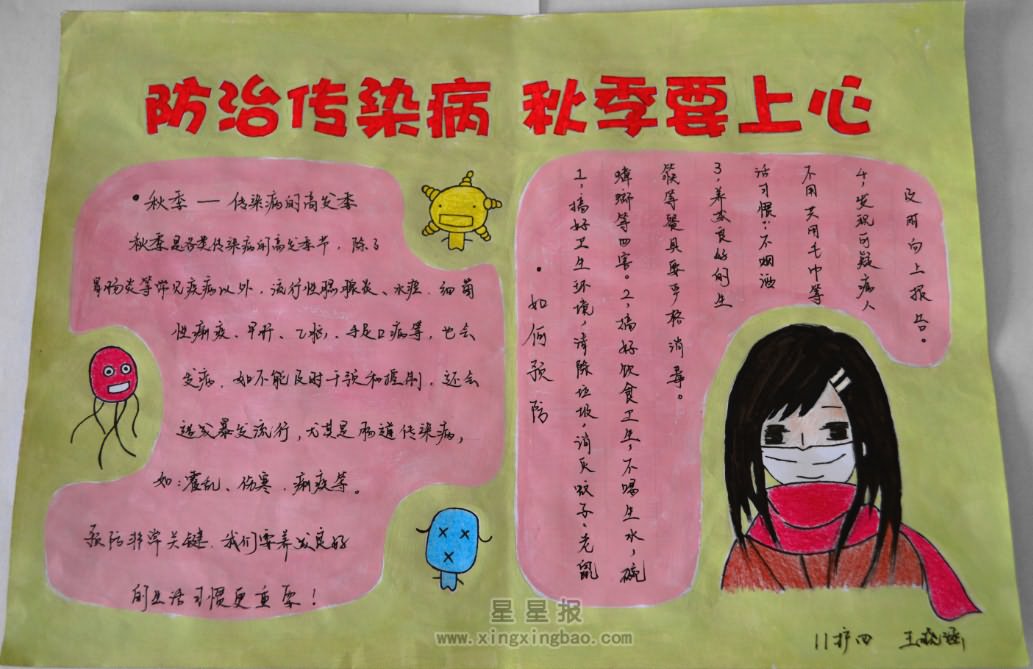 防治传染病 秋季要上心
•秋季—传染病的高发季
秋季是各类传染病的高发季节,除了
胃肠炎等常见疾病以外,流行性腮腺炎、水痘、细菌
性痢疾、甲肝、乙脑、手足口病等,也会
发病,如不能及时干预和控制,还会
造成暴发流行,尤其是肠道传染病,
如:霍乱、伤寒、痢疾等。
预防非常关键,我们要养成良好
的生活习惯更重要!
•如何预防
1、搞好卫生环境,清除垃圾,消灭蚊子、老鼠
蟑螂等四害。2、搞好饮食卫生,不喝生水,碗
筷等餐具要严格消毒。
3、养成良好的生
活习惯:不烟酒
不用共用毛巾等
4、发现可疑病人
向上报告。
11护四 王
星星报
www.xingxingbao.com